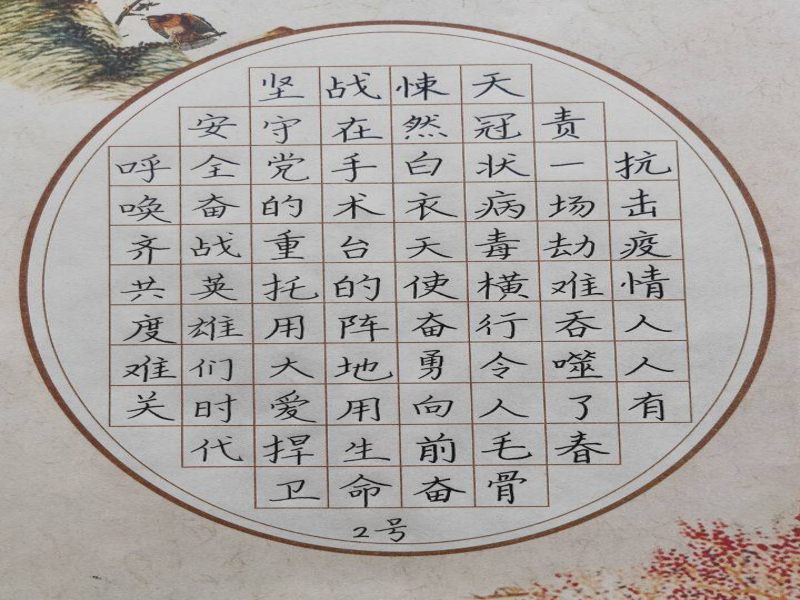 抗击疫情人人有
责一场劫难吞噬了春
天冠状病毒横行令人毛骨
悚然白衣天使奋勇向前奋
战在手术台的阵地用生命
坚守党的重托用大爱捍卫
安全奋战英雄们时代
呼唤齐共度难关
2号